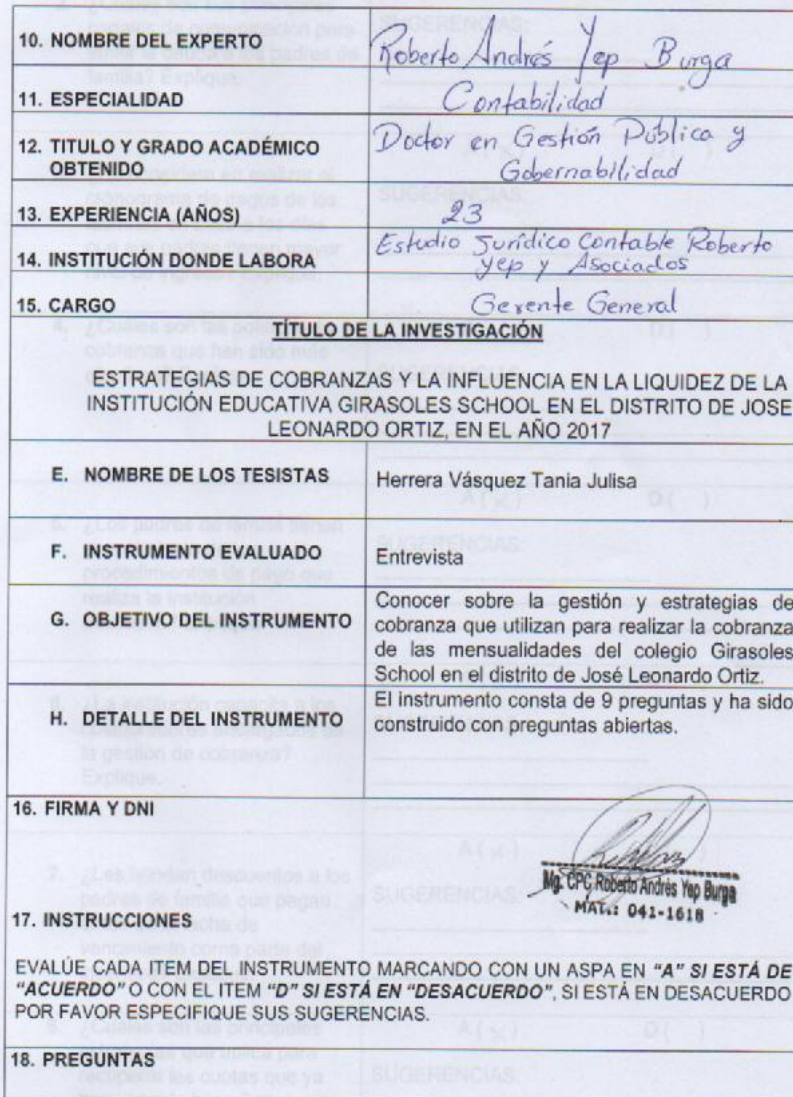 10. NOMBRE DEL EXPERTO
Roberto Andrés Yep Burga
11. ESPECIALIDAD
Contabilidad
12. TITULO Y GRADO ACADÉMICO
OBTENIDO
Doctor en Gestión Pública y
Gobernabilidad
13. EXPERIENCIA (AÑOS)
23
14. INSTITUCIÓN DONDE LABORA
Estudio Jurídico Contable Roberto
Yep y Asociados
15. CARGO
Gerente General
TÍTULO DE LA INVESTIGACIÓN
ESTRATEGIAS DE COBRANZAS Y LA INFLUENCIA EN LA LIQUIDEZ DE LA
INSTITUCIÓN EDUCATIVA GIRASOLES SCHOOL EN EL DISTRITO DE JOSE
LEONARDO ORTIZ, EN EL AÑO 2017
E. NOMBRE DE LOS TESISTAS
Herrera Vásquez Tania Julisa
F. INSTRUMENTO EVALUADO
Entrevista
G. OBJETIVO DEL INSTRUMENTO
Conocer sobre la gestión y estrategias de
cobranza que utilizan para realizar la cobranza
de las mensualidades del colegio Girasoles
School en el distrito de José Leonardo Ortiz.
H. DETALLE DEL INSTRUMENTO
El instrumento consta de 9 preguntas y ha sido
construido con preguntas abiertas.
16. FIRMA Y DNI
Mg. CPC Roberto Andrés Yep Burga
MAT.: 041-1618
17. INSTRUCCIONES
EVALÚE CADA ITEM DEL INSTRUMENTO MARCANDO CON UN ASPA EN "A" SI ESTÁ DE
"ACUERDO" O CON EL ITEM "D" SI ESTÁ EN "DESACUERDO", SI ESTÁ EN DESACUERDO
POR FAVOR ESPECIFIQUE SUS SUGERENCIAS.
18. PREGUNTAS